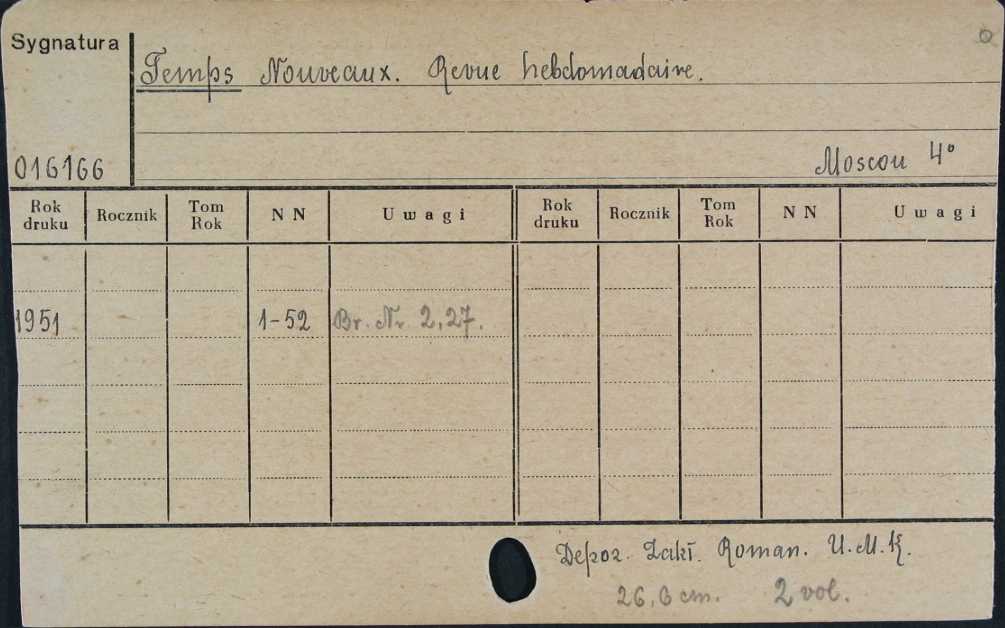 Sygnatura
Temps Nouveaux. Revue hebdomadaire.
016166
Moscou 4°
Rok druku Rocznik Tom Rok NN Uwagi Rok druku Rocznik Tom Rok NN Uwagi
1951 1-52 Br. Nr. 2,27.
Depoz. Zakł. Roman. U.M.K.
26,6 cm. 2 vol.